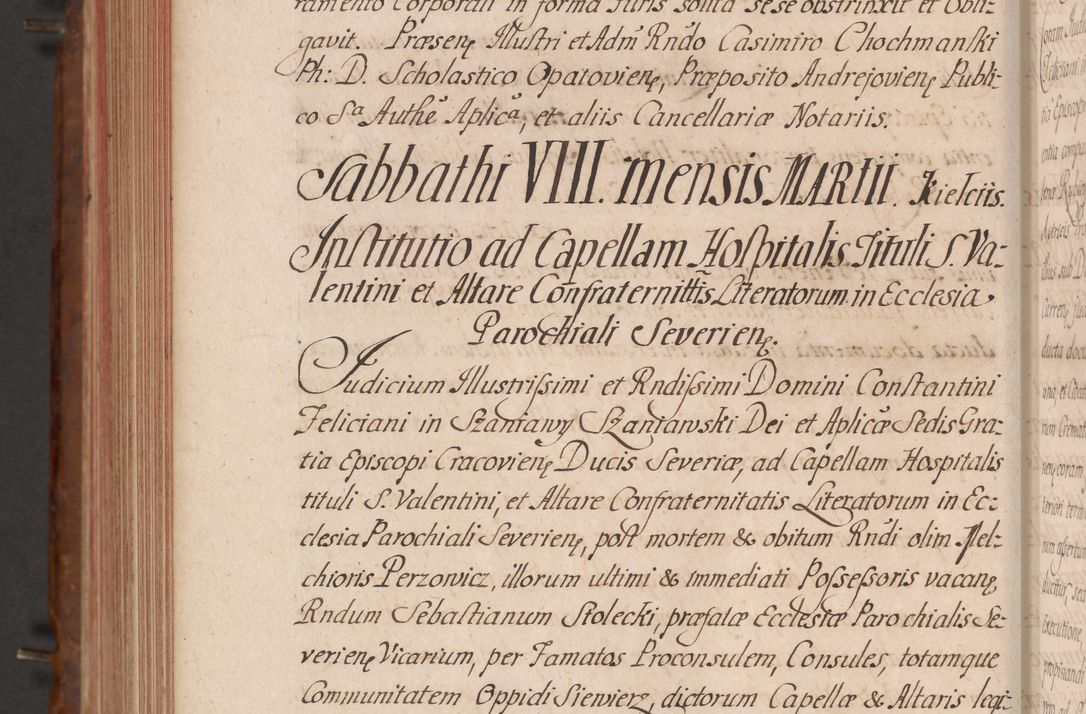 ramento Corporali in forma Juris solita sese obstrinxit et Obli-
gavit. Præsenę Illustri et Adm̃ Rñdo Casimiro Chochmanſki
Ph: D. Scholastico Opatovienę, Præposito Andrejovienę Publi-
co Sᵃ Autħe Aplicᵃ, et aliis Cancellariæ Notariis.
Sabbathi VIII. mensis MARTII. Kielciis.
Inſtitutio ad Capellam Hoſpitalis Tituli S. Va-
lentini et Altare Confraternittis Literatorum in Ecclesia
Parochiali Severienę.
Judicium Illustriſsimi et Rndiſsimi Domini Conſtantini
Feliciani in Szaniawy Szaniawski Dei et Aplicæ Sedis Gra-
tia Episcopi Cracovienę Ducis Severiæ, ad Capellam Hospitalis
tituli S. Valentini, et Altare Confraternitatis Literatorum in Ec-
clesia Parochiali Severienę, poſt mortem & obitum Rndi olim Mel-
chioris Perzowicz, illorum ultimi & immediati Poſseſsoris vacanę
Rndum Sebaſtianum Stolecki, præfatæ Ecclesiæ Parochialis Se-
verienę Vicarium, per Famatos Proconsulem, Consules, totamque
Communitatem Oppidi Siewierz, dictorum Capellæ & Altaris legi-